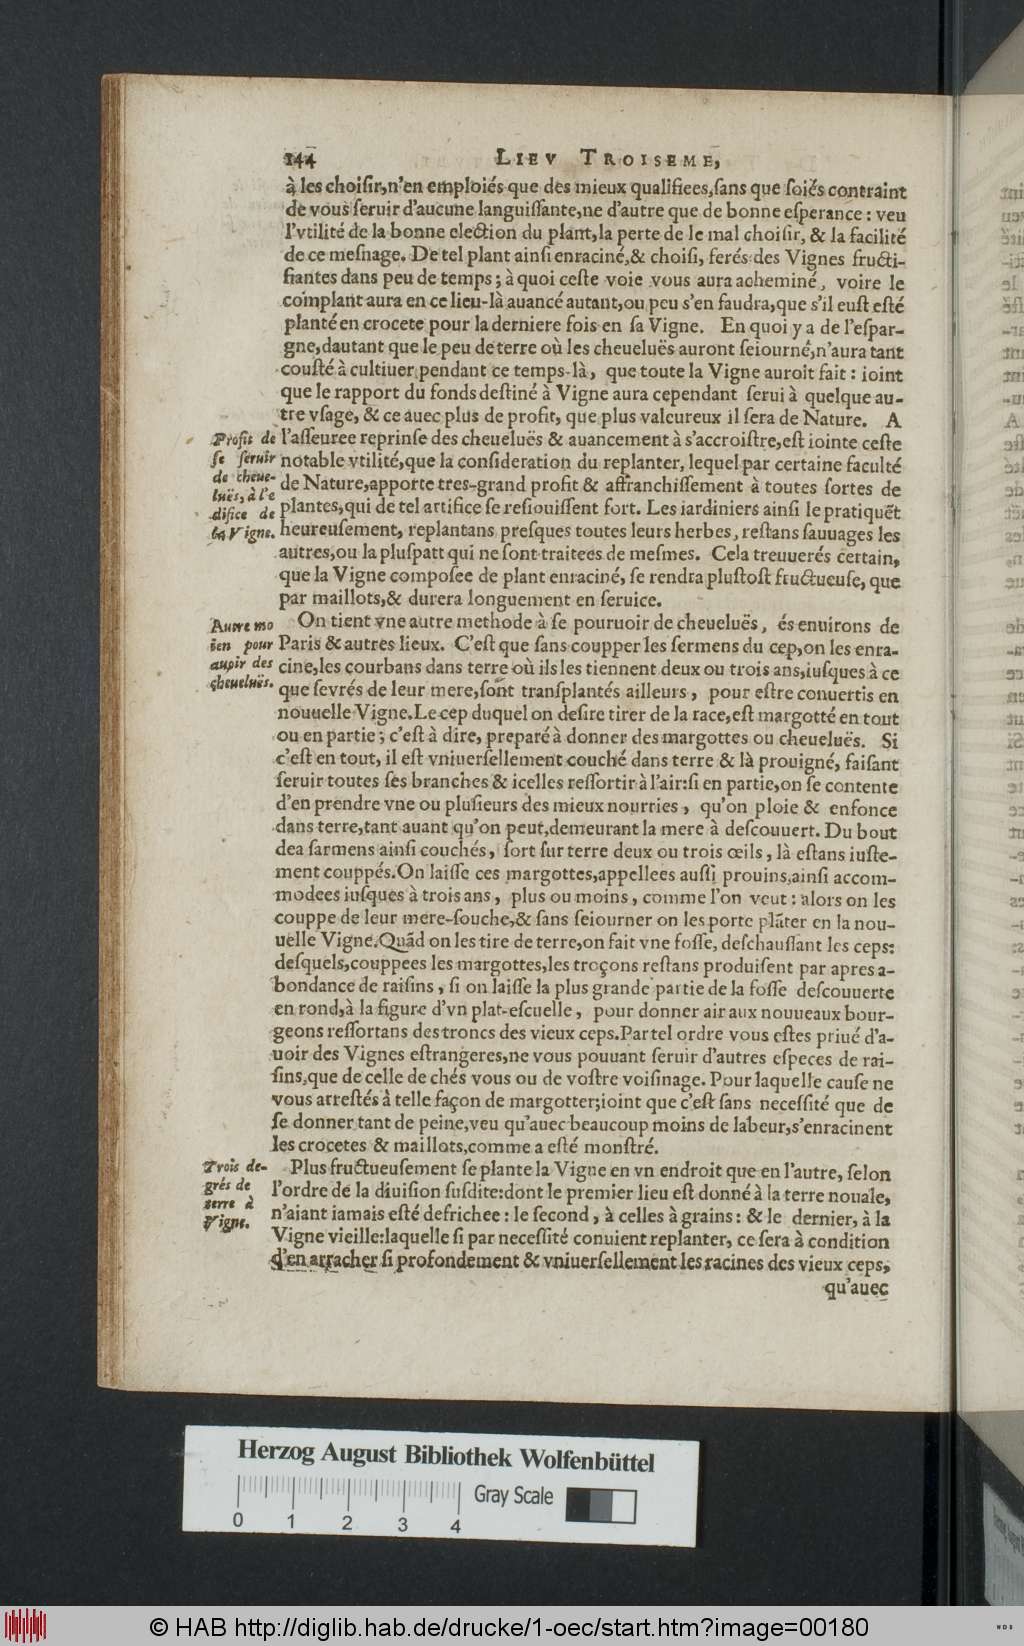 144 LIEV TROISEME,
à les choiſir,n'en emploiés que des mieux qualifiees,ſans que ſoiés contraint
de vous ſeruir d'aucune languiſſante,ne d'autre que de bonne eſperance : veu
l'vtilité de la bonne election du plant,la perte de le mal choiſir, & la facilité
de ce meſnage. De tel plant ainſi enraciné,& choiſi, ferés des Vignes fructi-
fiantes dans peu de temps ; à quoi ceſte voie vous aura acheminé, voire le
complant aura en ce lieu-là auancé autant,ou peu s'en faudra,que s'il euſt eſté
planté en crocete pour la derniere fois en ſa Vigne. En quoi y a de l'eſpar-
gne,dautant que le peu de terre où les cheueluës auront ſeiourné,n'aura tant
couſté à cultiuer pendant ce temps-là, que toute la Vigne auroit fait : ioint
que le rapport du fonds deſtiné à Vigne aura cependant ſerui à quelque au-
tre vſage, & ce auec plus de profit, que plus valeureux il ſera de Nature. A
Profit de
ſe ſeruir
de cheue-
luës, à l'e
difice de
la Vigne.
l'aſſeuree reprinſe des cheueluës & auancement à s'accroiſtre,eſt iointe ceſte
notable vtilité,que la conſideration du replanter, lequel par certaine faculté
de Nature,apporte tres-grand profit & affranchiſſement à toutes ſortes de
plantes,qui de tel artifice ſe reſiouiſſent fort. Les iardiniers ainſi le pratiquẽt
heureuſement, replantans preſques toutes leurs herbes, reſtans ſauuages les
autres,ou la pluſpatt qui ne ſont traitees de meſmes. Cela treuuerés certain,
que la Vigne compoſee de plant enraciné, ſe rendra pluſtoſt fructueuſe, que
par maillots,& durera longuement en ſeruice.
Autre mo
ien pour
auoir des
cheueluës.
On tient vne autre methode à ſe pouruoir de cheueluës, és enuirons de
Paris & autres lieux. C'eſt que ſans coupper les ſermens du cep,on les enra-
cine,les courbans dans terre où ils les tiennent deux ou trois ans,iuſques à ce
que ſevrés de leur mere,ſont tranſplantés ailleurs, pour eſtre conuertis en
nouuelle Vigne.Le cep duquel on deſire tirer de la race,eſt margotté en tout
ou en partie ; c'eſt à dire, preparé à donner des margottes ou cheueluës. Si
c'eſt en tout, il eſt vniuerſellement couché dans terre & là prouigné, faiſant
ſeruir toutes ſes branches & icelles reſſortir à l'air:ſi en partie,on ſe contente
d'en prendre vne ou pluſieurs des mieux nourries, qu'on ploie & enfonce
dans terre,tant auant qu'on peut,demeurant la mere à deſcouuert. Du bout
dea ſarmens ainſi couchés, ſort ſur terre deux ou trois œils, là eſtans iuſte-
ment couppés.On laiſſe ces margottes,appellees auſſi prouins,ainſi accom-
modees iuſques à trois ans, plus ou moins, comme l'on veut : alors on les
couppe de leur mere-ſouche,& ſans ſeiourner on les porte plãter en la nou-
uelle Vigne.Quãd on les tire de terre,on fait vne foſſe, deſchauſſant les ceps:
deſquels,couppees les margottes,les troçons reſtans produiſent par apres a-
bondance de raiſins, ſi on laiſſe la plus grande partie de la foſſe deſcouuerte
en rond,à la figure d'vn plat-eſcuelle, pour donner air aux nouueaux bour-
geons reſſortans des troncs des vieux ceps.Par tel ordre vous eſtes priué d'a-
uoir des Vignes eſtrangeres,ne vous pouuant ſeruir d'autres eſpeces de rai-
ſins,que de celle de chés vous ou de voſtre voiſinage. Pour laquelle cauſe ne
vous arreſtés à telle façon de margotter;ioint que c'eſt ſans neceſſité que de
ſe donner tant de peine,veu qu'auec beaucoup moins de labeur,s'enracinent
les crocetes & maillots,comme a eſté monſtré.
Trois de-
grés de
terre à
Vigne.
Plus fructueuſement ſe plante la Vigne en vn endroit que en l'autre, ſelon
l'ordre de la diuiſion ſuſdite:dont le premier lieu eſt donné à la terre nouale,
n'aiant iamais eſté defrichee : le ſecond, à celles à grains : & le dernier, à la
Vigne vieille:laquelle ſi par neceſſité conuient replanter, ce ſera à condition
d'en arracher ſi profondement & vniuerſellement les racines des vieux ceps,
qu'auec
Herzog August Bibliothek Wolfenbüttel
Gray Scale
0 1 2 3 4
© HAB http://diglib.hab.de/drucke/1-oec/start.htm?image=00180